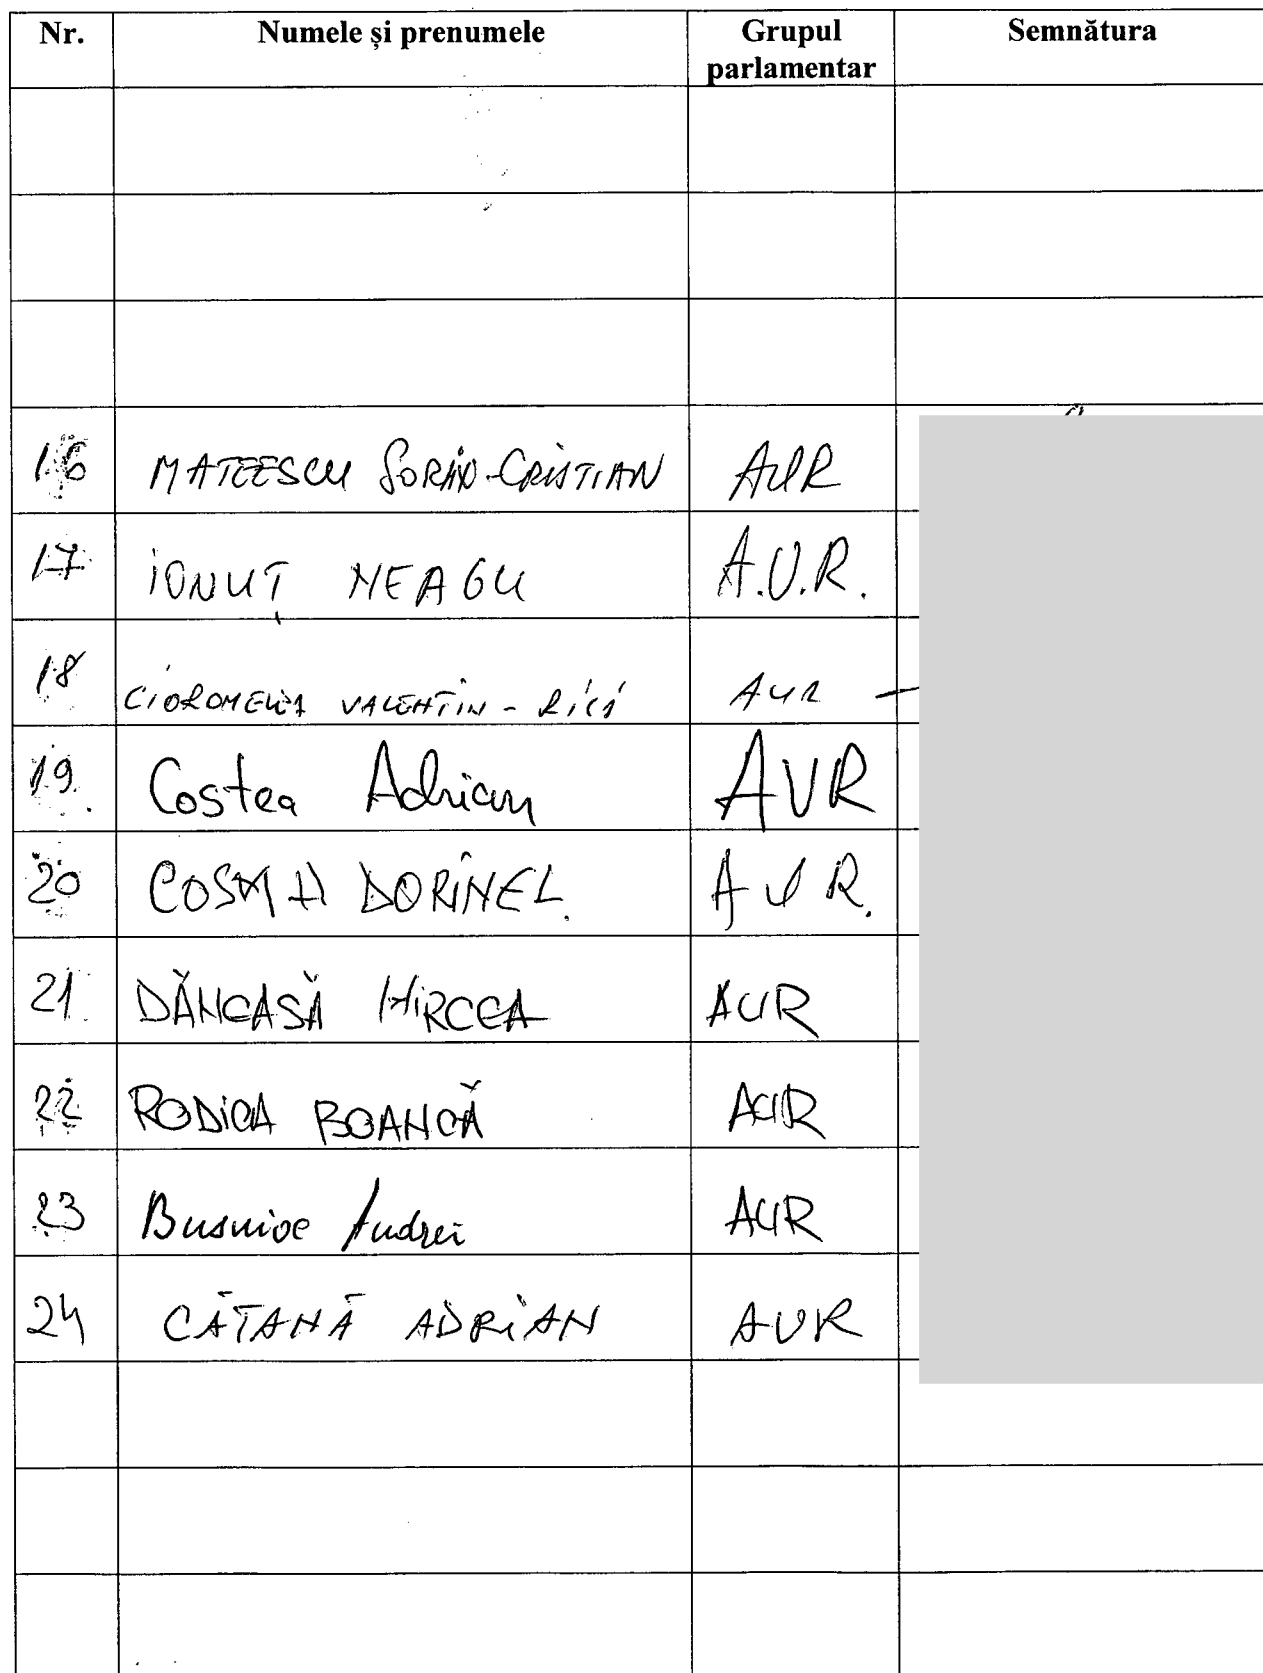 Nr. Numele și prenumele Grupul parlamentar Semnătura
16 MATEESCU SORIN-CRISTIAN AUR
17 IONUȚ NEAGU A.U.R.
18 CIOROMELEA VALENTIN - RICĂ AUR
19. Costea Adrian AUR
20 COSMA DORINEL. AUR.
21. DĂNCASĂ MIRCEA AUR
22 RODICA BOANCĂ AUR
23 Busuioc Andrei AUR
24 CĂTANĂ ADRIAN AUR